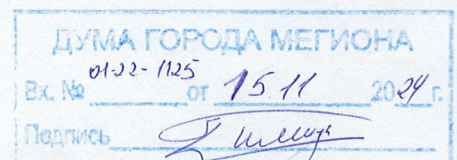 ДУМА ГОРОДА МЕГИОНА
Вх. № 01-22-1125 от 15.11 2024 г.
Подпись